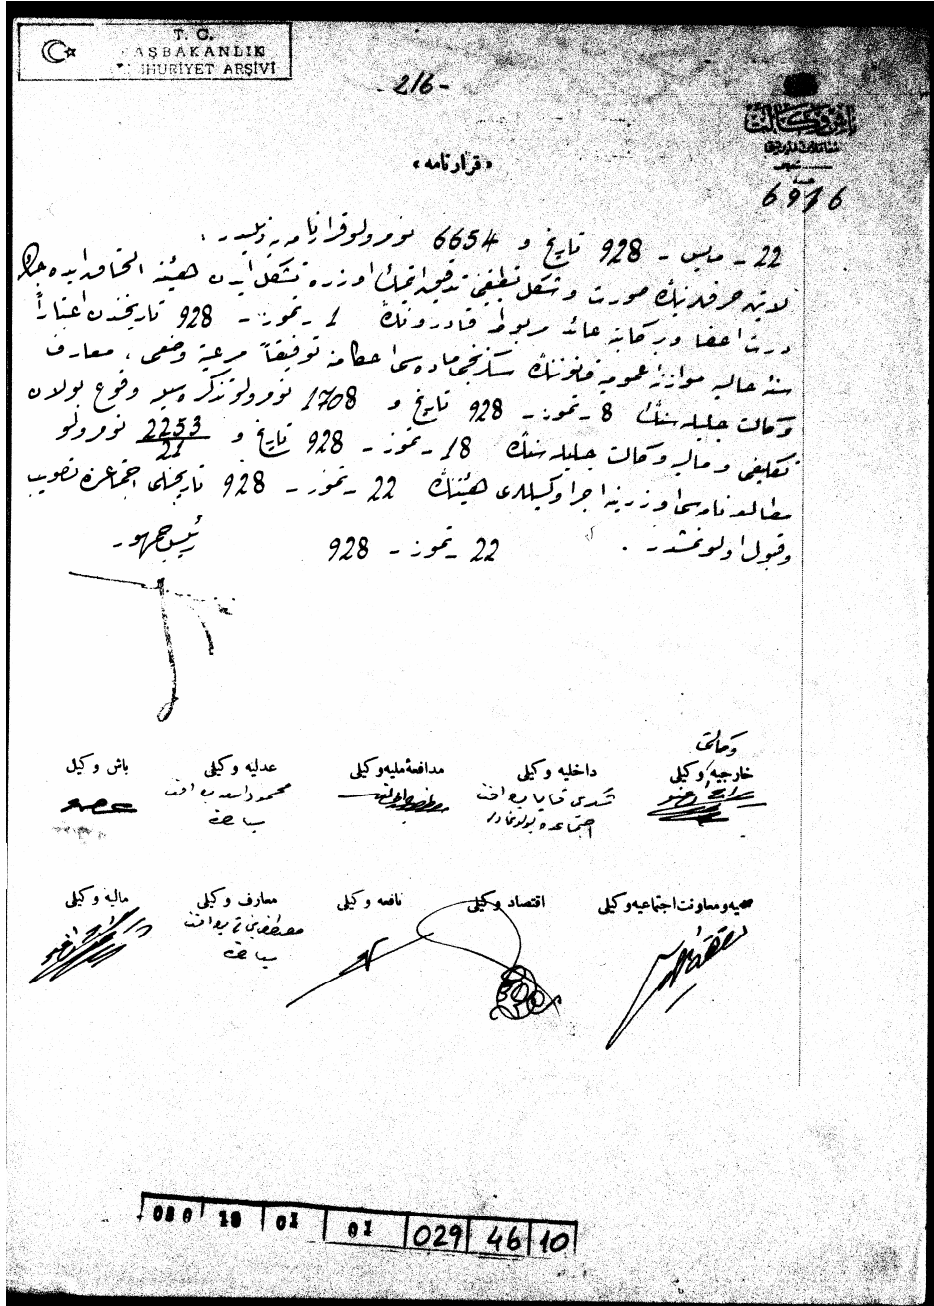 T. C.
BAŞBAKANLIK
CUMHURİYET ARŞİVİ
-216-
باش وكالت
«قرارنامه»
6916
22 ـ مايس ـ 928 تاريخ و 6654 نومرولو قرارنامه يه ذيلدر .
لاتين حرفلرينك صورت و شكل تطبيقنى تدقيق ايتمك اوزره تشكل ايدن هيئته التحاق ايده جك
درت اعضا و بر كاتبه عائد مربوط قادرونك 1 ـ تموز ـ 928 تاريخندن اعتباراً
سنۀ حاليه موازنۀ عموميه قانوننك سكزنجى ماده سى احكامنه توفيقاً مرعيته وضعى ، معارف
وكالت جليله سنك 8 ـ تموز ـ 928 تاريخ و 1708 نومرولو تذكره سيله وقوع بولان
تكليفى و ماليه وكالت جليله سنك 18 ـ تموز ـ 928 تاريخ و 2253/21 نومرولو
مطالعه نامه سى اوزرينه اجرا وكيللرى هيئتنك 22 ـ تموز ـ 928 تاريخلى اجتماعنده تصويب
و قبول اولونمشدر .
22 ـ تموز ـ 928
رئيس جمهور
باش وكيل
عدليه وكيلى
محمود اسعد بك افندى
سياحتده
مدافعۀ مليه وكيلى
داخليه وكيلى
شكرى قايا بك افندى
اجتماعده بولونمادى
وكالتى
خارجيه وكيلى
ماليه وكيلى
معارف وكيلى
مصطفى نجاتى بك افندى
سياحتده
نافعه وكيلى
اقتصاد وكيلى
صحيه و معاونت اجتماعيه وكيلى
030 18 01 01 029 46 10